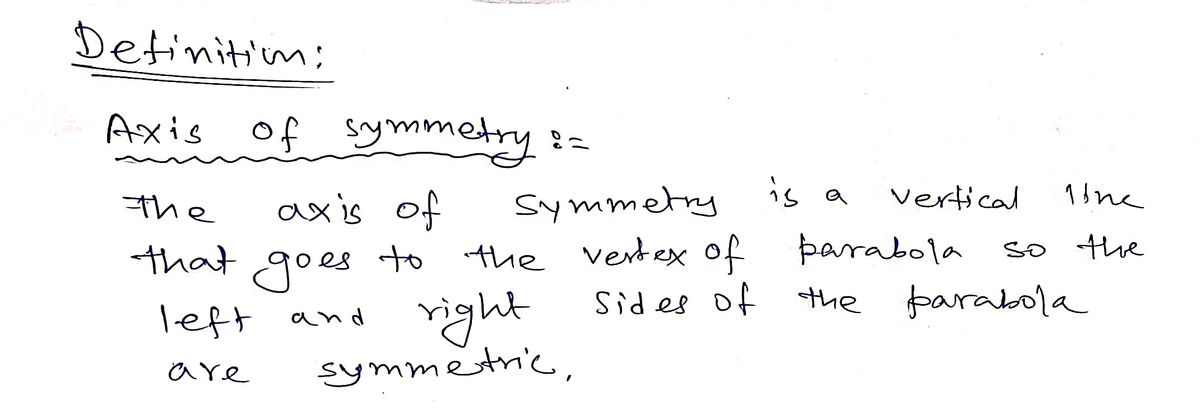 Definition:
Axis of symmetry :=
The axis of symmetry is a vertical line
that goes to the vertex of parabola so the
left and right sides of the parabola
are symmetric.